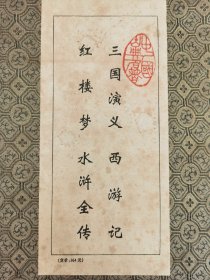 三国演义 西游记
红楼梦 水浒全传